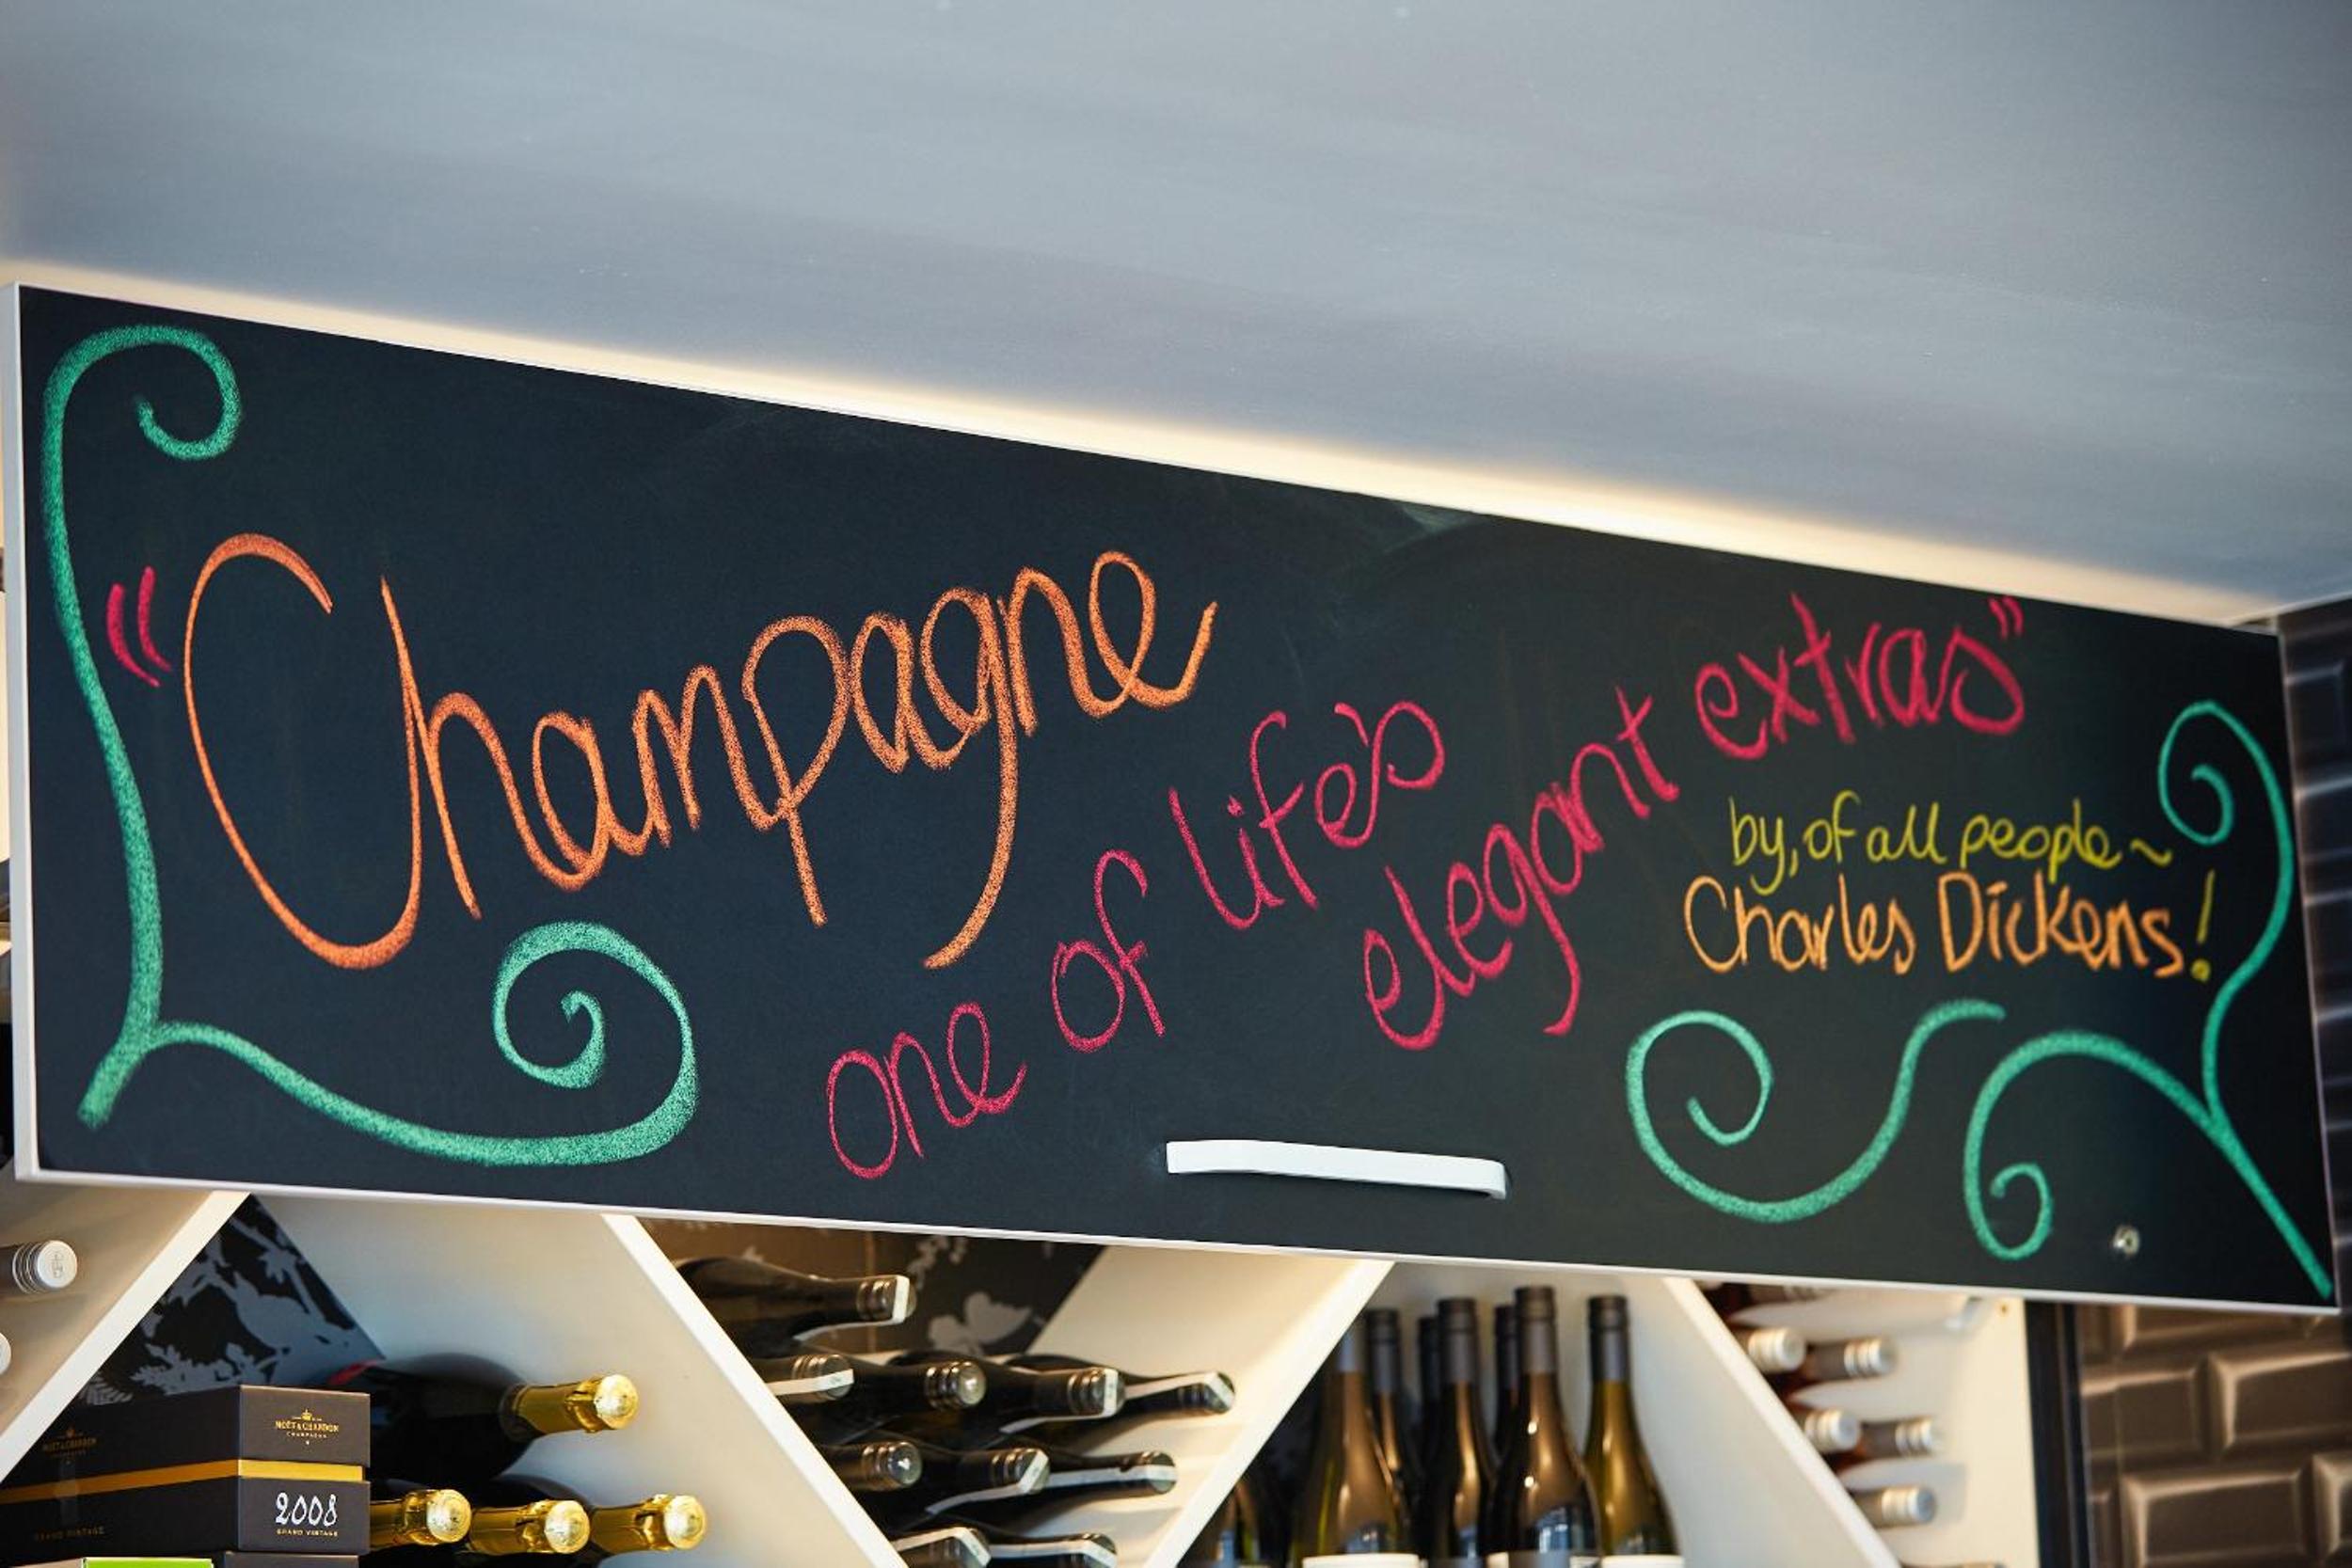 "Champagne
one of life's
elegant extras"
by, of all people ~
Charles Dickens!
MOËT & CHANDON
CHAMPAGNE
2008
GRAND VINTAGE
MOËT & CHANDON
GRAND VINTAGE